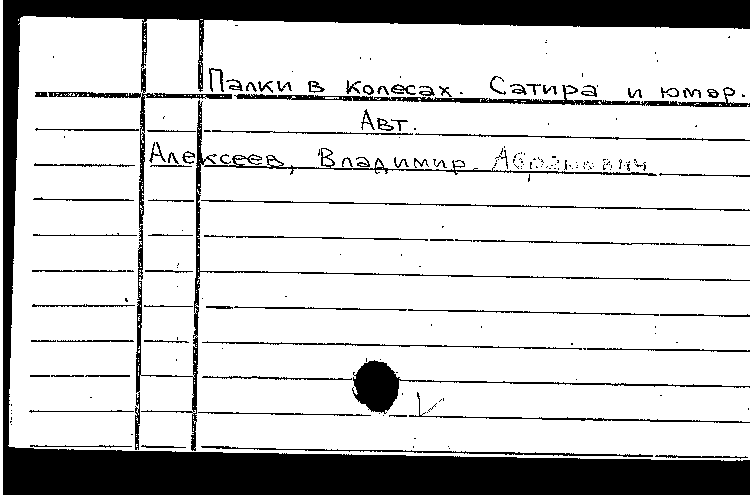 Палки в колесах. Сатира и юмор.
Авт.
Алексеев, Владимир Абрамович